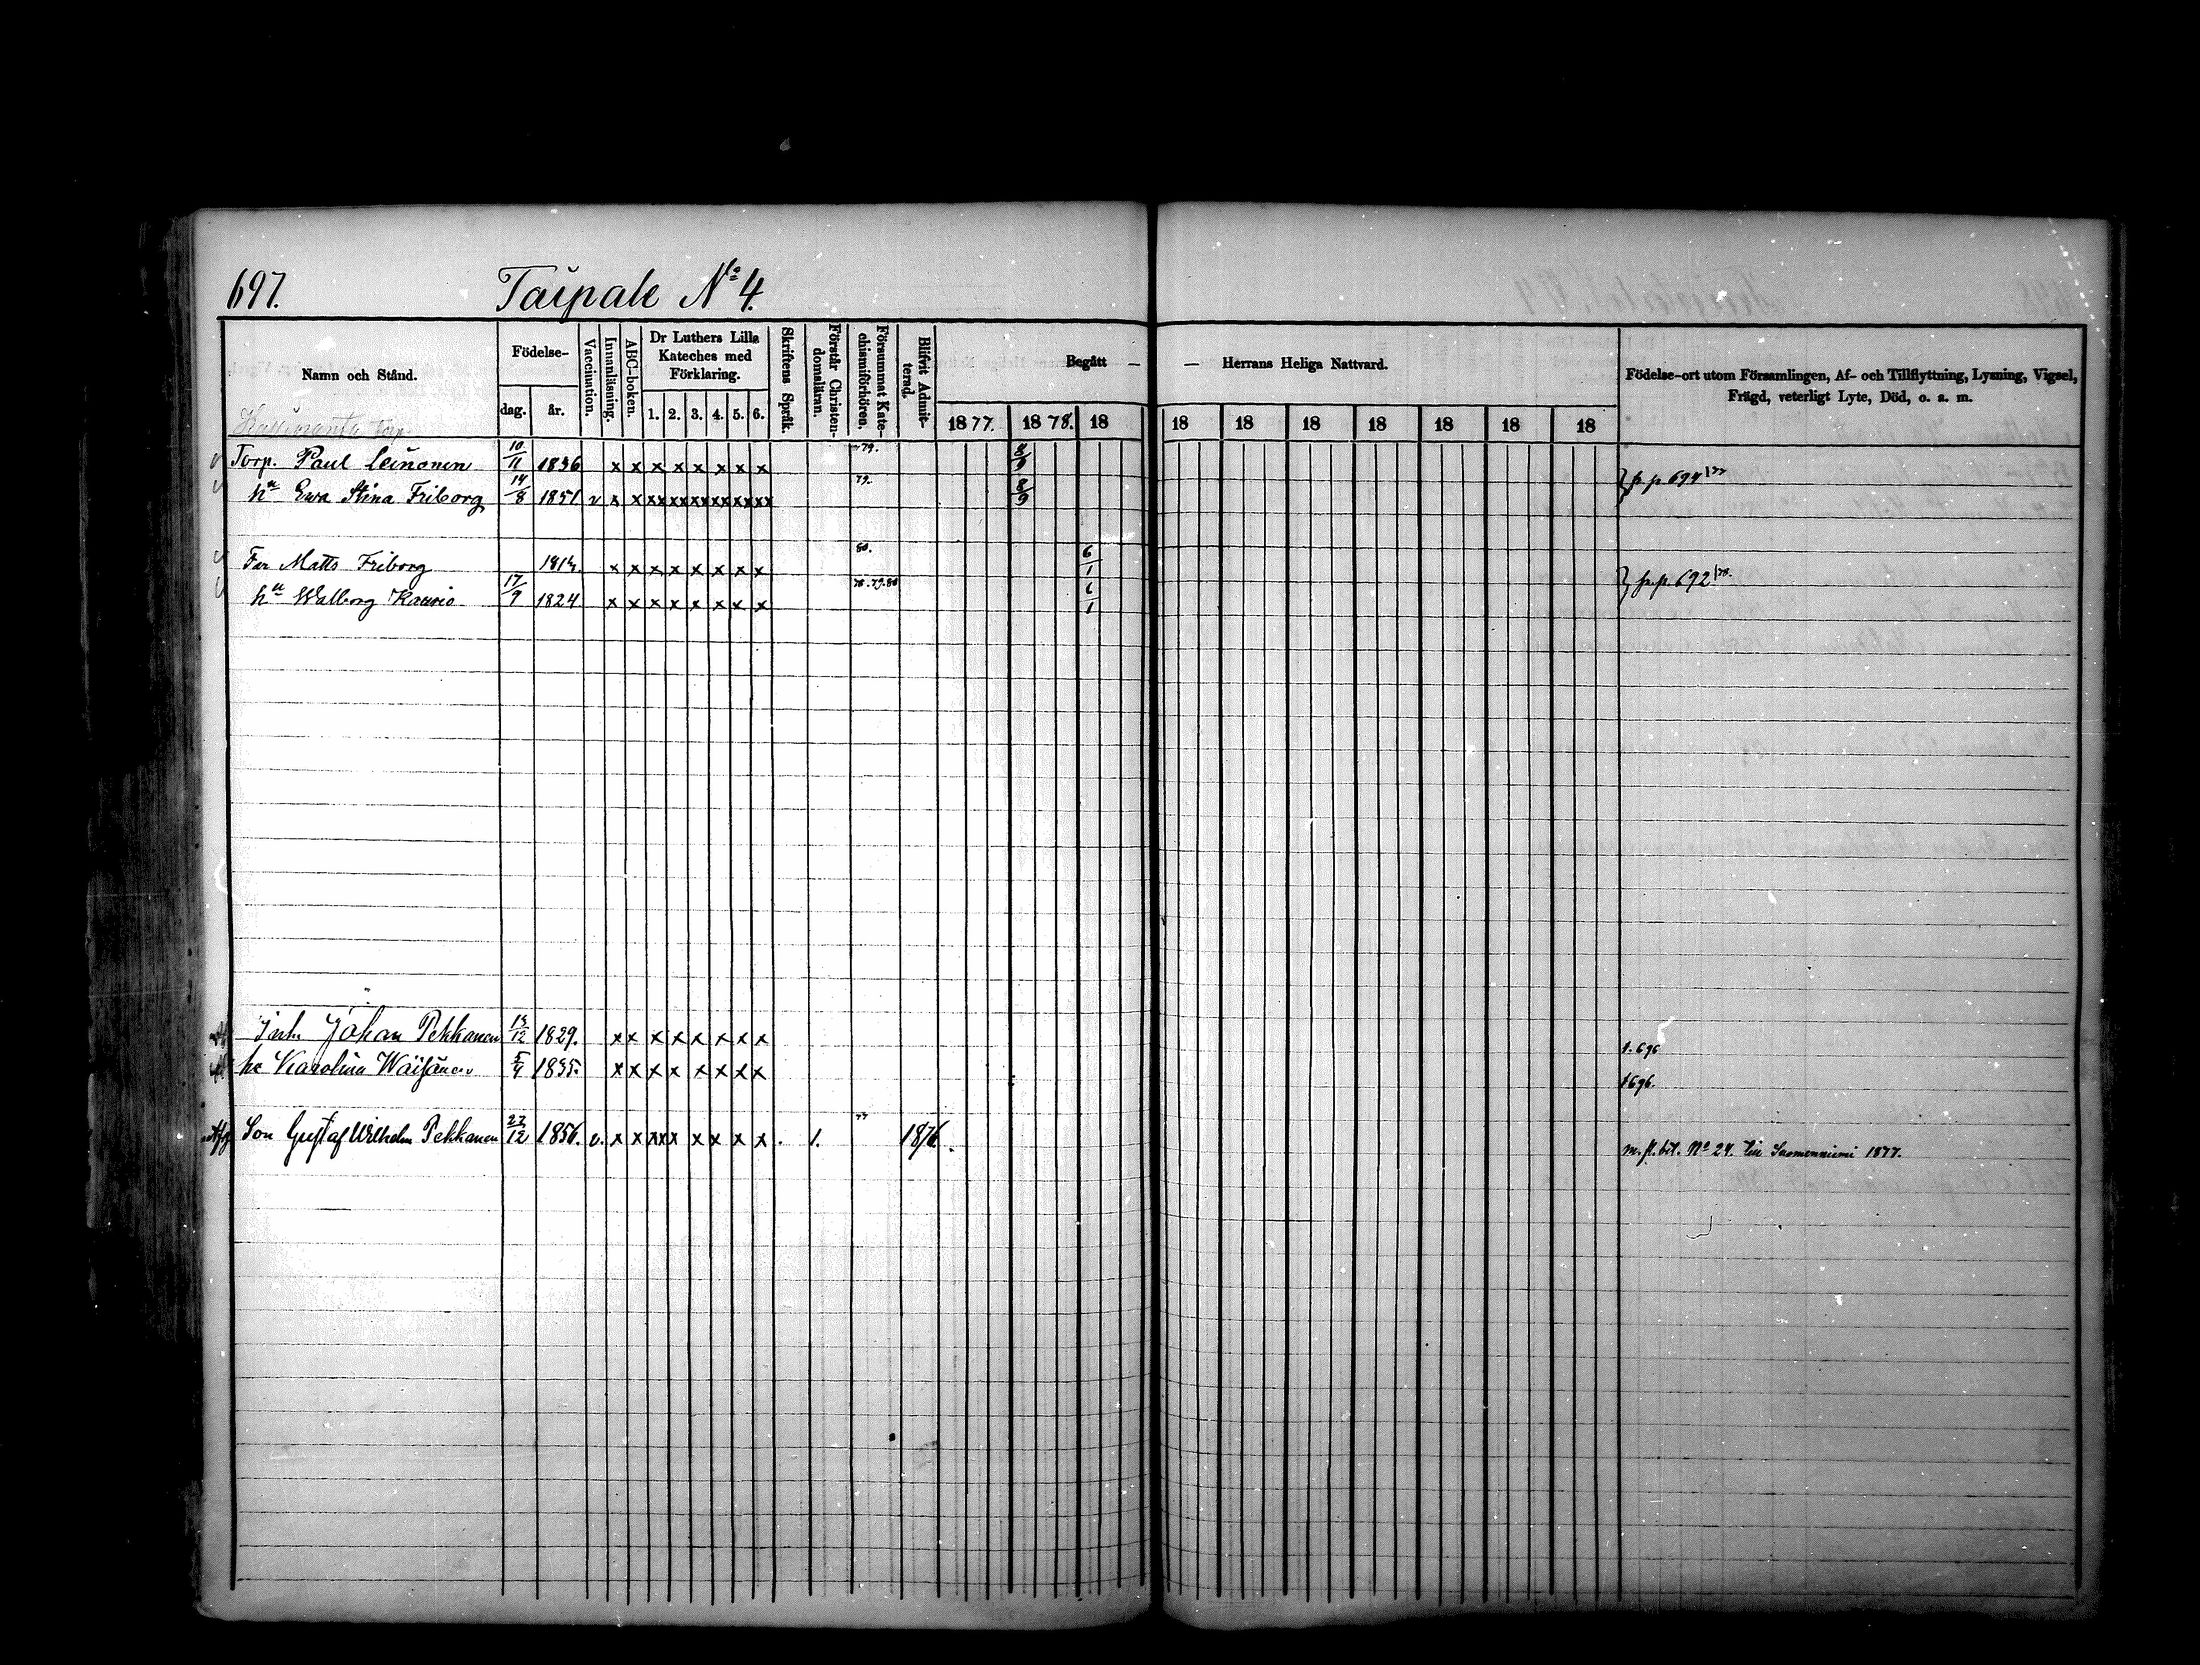 697. Taipale Nº 4.
Namn och Stånd. Födelse- dag. år. Vaccination. Innanläsning. ABC-boken. Dr Luthers Lilla Kateches med Förklaring. 1. 2. 3. 4. 5. 6. Skriftens Språk. Förstår Christendomsläran. Försummat Katechismiförhören. Blifvit Admitterad. Begått — — Herrans Heliga Nattvard. Födelse-ort utom Församlingen, Af- och Tillflyttning, Lysning, Vigsel, Frägd, veterligt Lyte, Död, o. a. m.
1877. 1878. 18 18 18 18 18 18 18 18
Torp. Paul Leinonen 10/11 1836 x x x x x x x x 79. 8/9
hu Ewa Stina Friborg 14/8 1851 v x x xx xx xx xx xx xx 79. 8/9 } fr p 694
Far Matts Friborg x x x x x x x x 80. 6/1
hu Walborg Kaurio 17/9 1824 x x x x x x x x 78. 79. 80 6/1 } fr. p. 692
Inh. Johan Pekkanen 1829. x x x x x x x x 1. 696
hu Karolina Waisänen 1835. x x x x x x x x 1696.
Son Gustaf Wilhelm Pekkanen 22/12 1856. v. x x xxx x x x x 1. 77 1876. m. fl. bet. Nº 24. till Suomenniemi 1877.